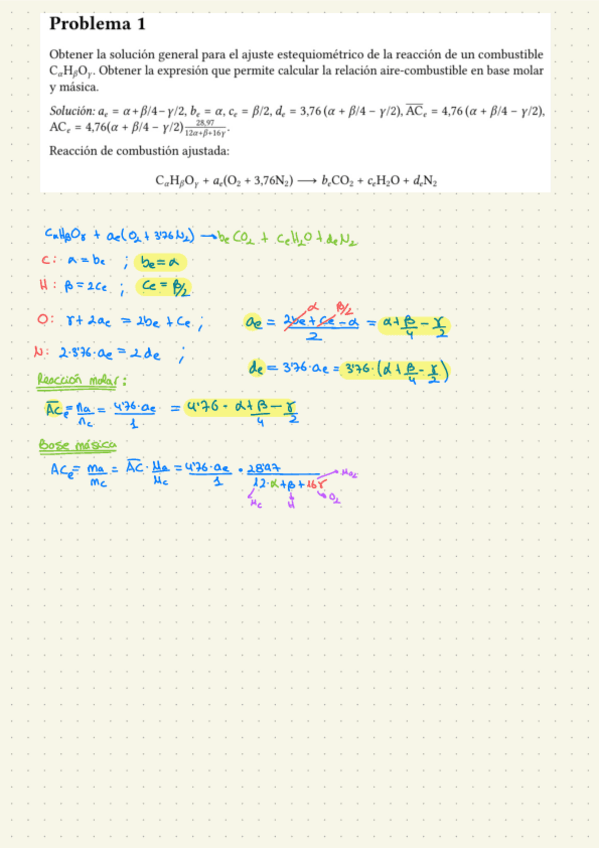 Problema 1
Obtener la solución general para el ajuste estequiométrico de la reacción de un combustible
CαHβOγ. Obtener la expresión que permite calcular la relación aire-combustible en base molar
y másica.
Solución: aₑ = α+β/4−γ/2, bₑ = α, cₑ = β/2, dₑ = 3,76 (α + β/4 − γ/2), A̅C̅ₑ = 4,76 (α + β/4 − γ/2),
ACₑ = 4,76(α + β/4 − γ/2) 28,97/(12α+β+16γ).
Reacción de combustión ajustada:
CαHβOγ + aₑ(O₂ + 3,76N₂) ⟶ bₑCO₂ + cₑH₂O + dₑN₂
CαHβOγ + aₑ(O₂ + 3'76 N₂) → bₑCO₂ + cₑH₂O + dₑN₂
C: α = bₑ ; bₑ = α
H: β = 2cₑ ; cₑ = β/2
O: γ + 2aₑ = 2bₑ + cₑ ; aₑ = (2bₑ + cₑ − α)/2 = α + β/4 − γ/2
α β/2
N: 2·3'76·aₑ = 2dₑ ; dₑ = 3'76·aₑ = 3'76·(α + β/4 − γ/2)
Reacción molar:
A̅C̅ₑ = na/nc = 4'76·aₑ/1 = 4'76 · α + β/4 − γ/2
Base másica
ACₑ = ma/mc = A̅C̅ · Ma/Mc = 4'76·aₑ/1 · 28'97/(12·α + β + 16γ)
Mc H O₂